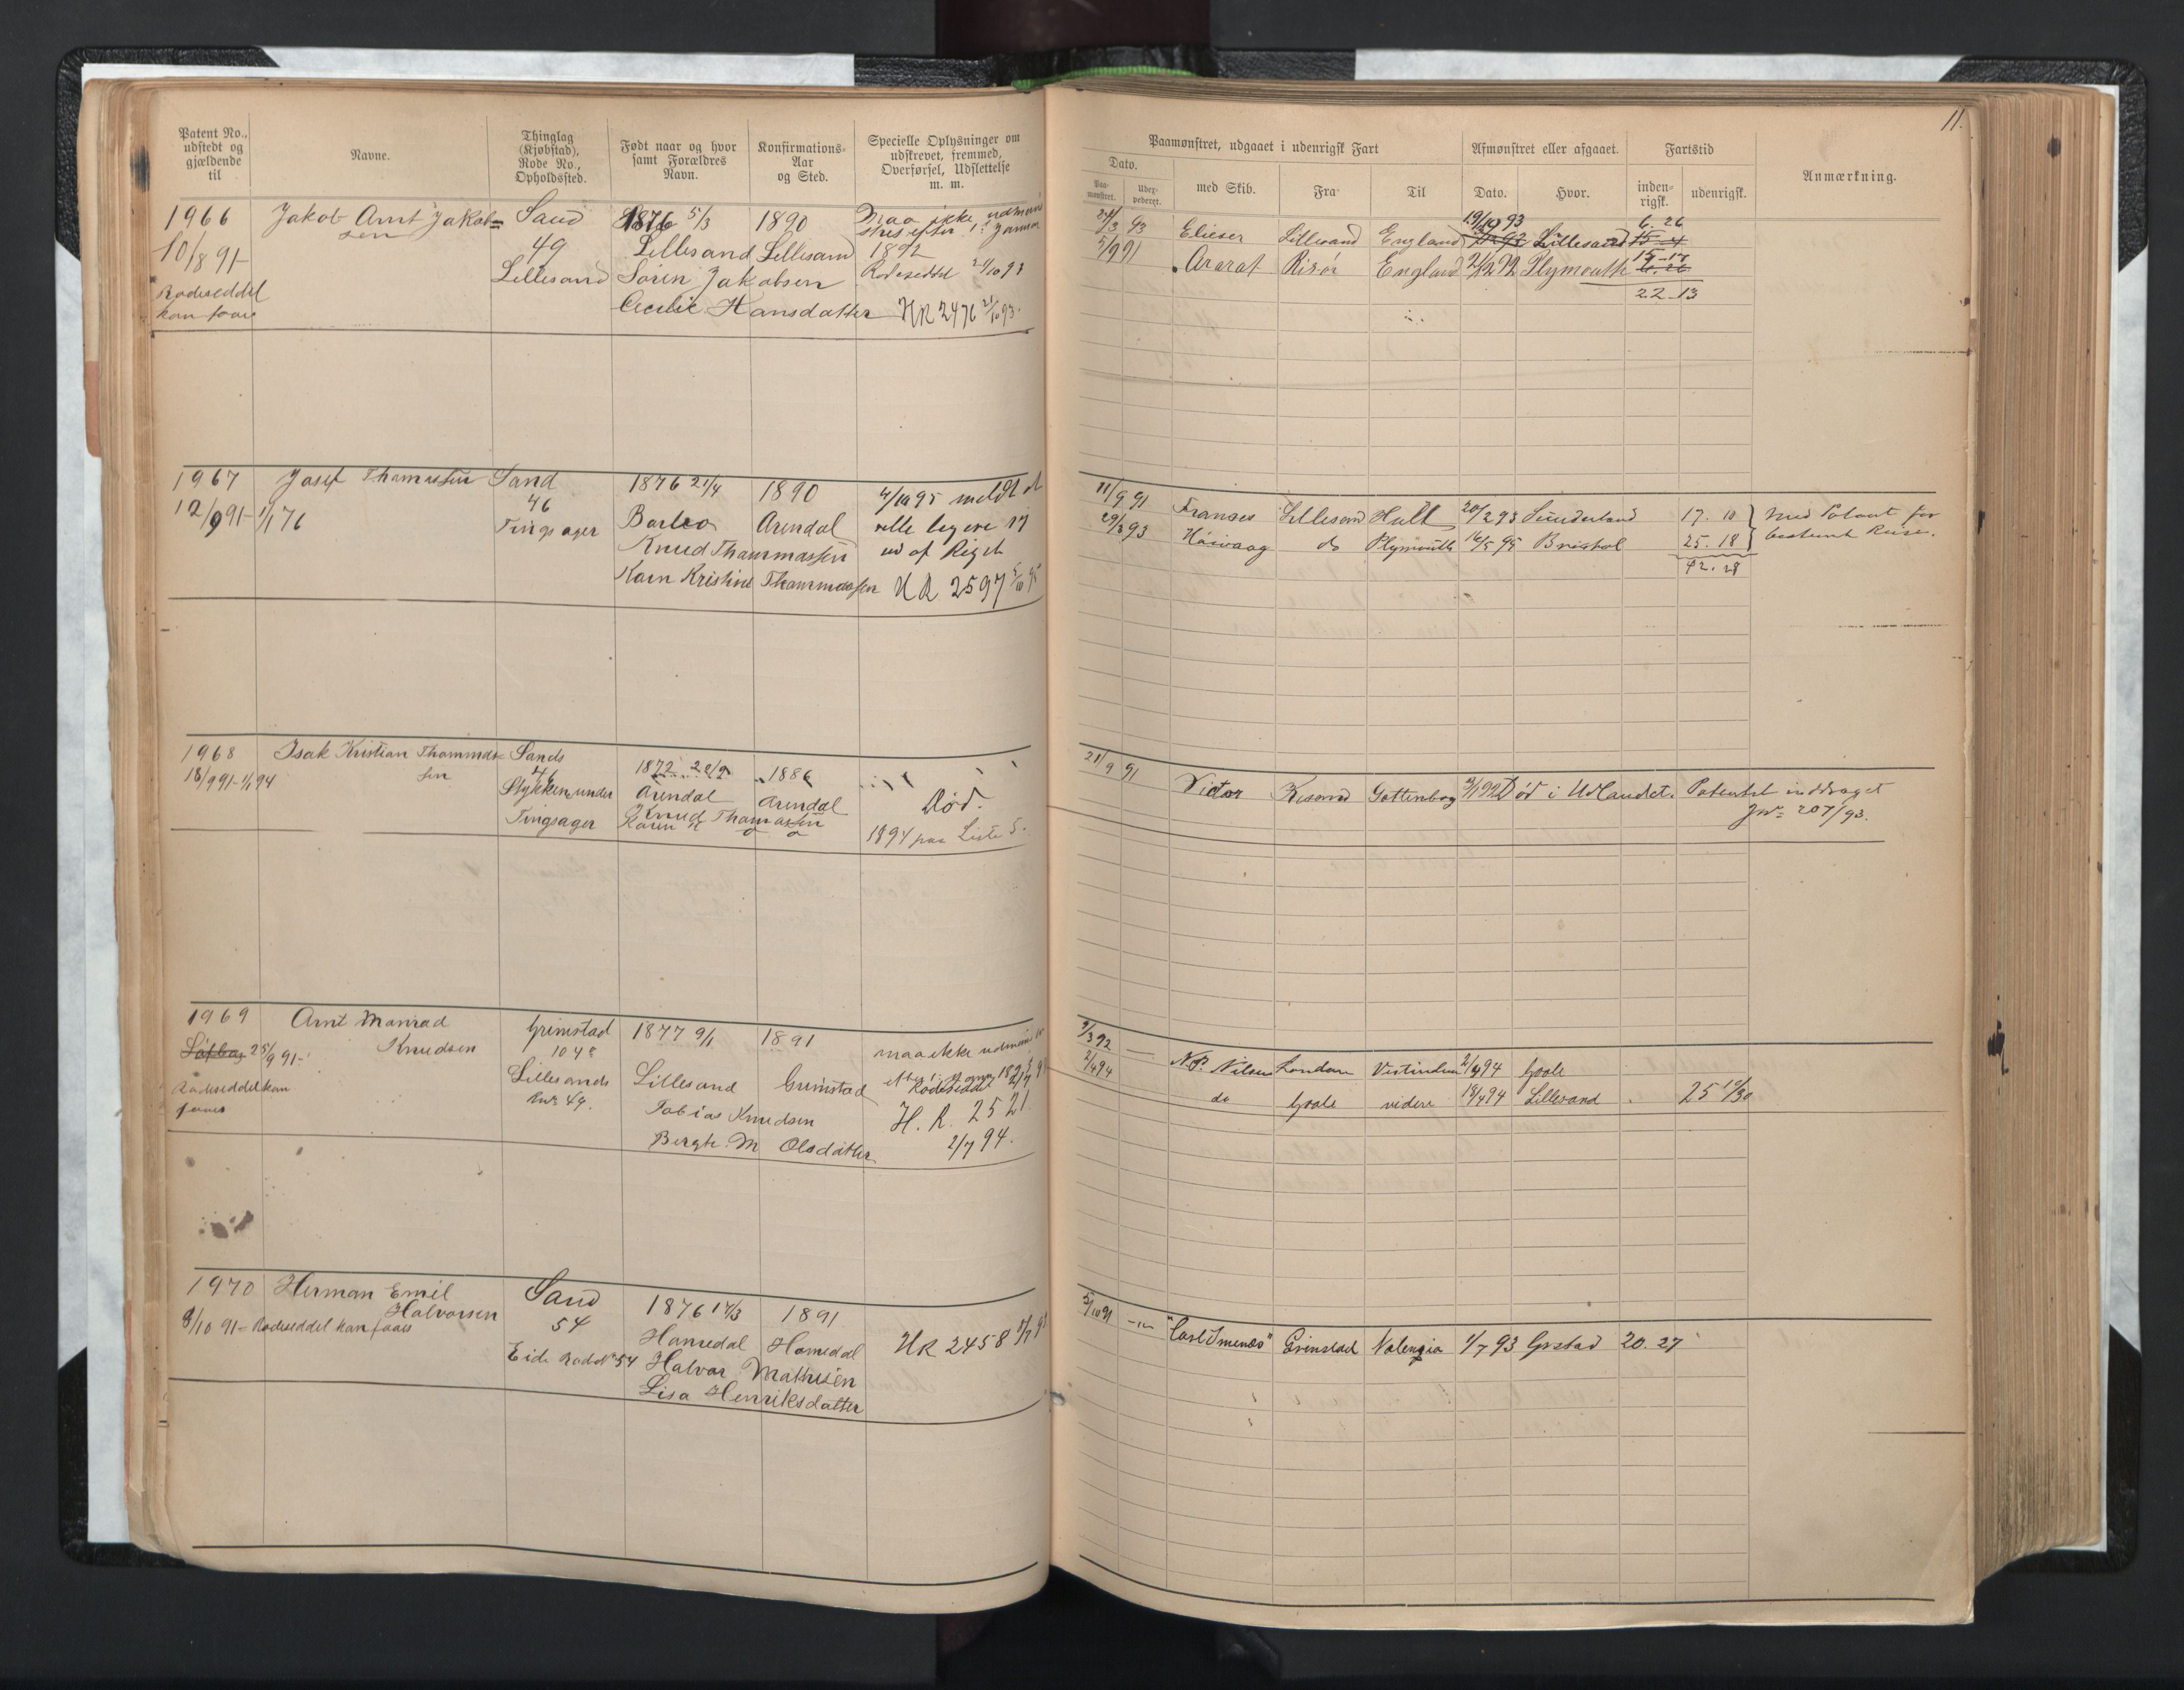 11.
Patent No., udstedt og gjældende til
Navne.
Thinglag (Kjøbstad), Rode No., Opholdssted.
Født naar og hvor samt Forældres Navn.
Konfirmations-Aar og Sted.
Specielle Oplysninger om udskrevet, fremmed, Overførsel, Udslettelse m. m.
Paamønstret, udgaaet i udenrigsk Fart
Afmønstret eller afgaaet.
Fartstid
Anmærkning.
Dato.
Paa-mønstret.
Udex-pederet.
med Skib.
Fra
Til
Dato.
Hvor.
inden-rigsk.
udenrigsk.
1966 Jakob Arnt Jakob=
sen
10/8 91-
Rodeseddel
kan faaes
Sand
49
Lillesand
1876 5/3
Lillesand
Søren Jakobsen
Cecilie Hansdatter
1890
Lillesand
Maa ikke udmøn
stres efter 1ste Januar
1892
Rodeseddel 21/10 93
HR 2476 21/10 93.
24/3 93 Elieser Lillesand England 19/10 93 Lillesand 6. 26
5/9 91 Ararat Risør England 21/12 92 Plymouth 15-17
22.13
1967 Josef Thomassen
12/9 91- 1/1 76
Sand
46
Tingsager
1876 21/4
Barbo
Knud Thammassen
Karn Kristine Thammassen
1890
Arendal
4/10 95 meldt at
ville begive sig
ud af Riget
HR 2597 5/10 95
11/9 91 Franses Lillesand Hull 20/2 93 Sunderland 17. 10
29/3 93 Høivaag do Plymouth 16/5 95 Bristol 25. 18
42. 28
Med Patent for
bestemt Reise.
1968 Isak Kristian Thommas=
sen
18/9 91-1/1 94
Sands
46
Stykken under
Tingsager
1872 28/9
Arendal
Knud Thomassen
Karen K
1886
Arendal
Død.
1894 paa Liste 5.
21/9 91 Victor Gottenborg Død i Udlandet. Patentet inddraget
Jn= 207/93.
1969 Arnt Manrad
Knudsen
25/9 91-
Rodeseddel kan
faaes
Grimstad
1048
Lillesands
Rn= 49.
1877 9/1
Lillesand
Tobias Knudsen
Bergte M Olsdatter
1891
Grimstad
maa ikke udmøn
Rodeseddel
H. R. 2521
2/7 94.
9/3 92 — N. P. Nilsen London Vestindien 2/4 94 Goole
2/4 94 do Goole videre 18/4 94 Lillesand 25 11/30
1970 Herman Emil
Halvorsen
8/10 91- Rodeseddel kan faaes
Sand
54
Eide Rode No 54
1876 17/3
Homedal
Halvor Mathisen
Lisa Henriksdatter
1891
Homedal
HR 2458
5/10 91 -"- "Carl Smenes" Grimstad Valenzia 1/7 93 Grstad 20. 27